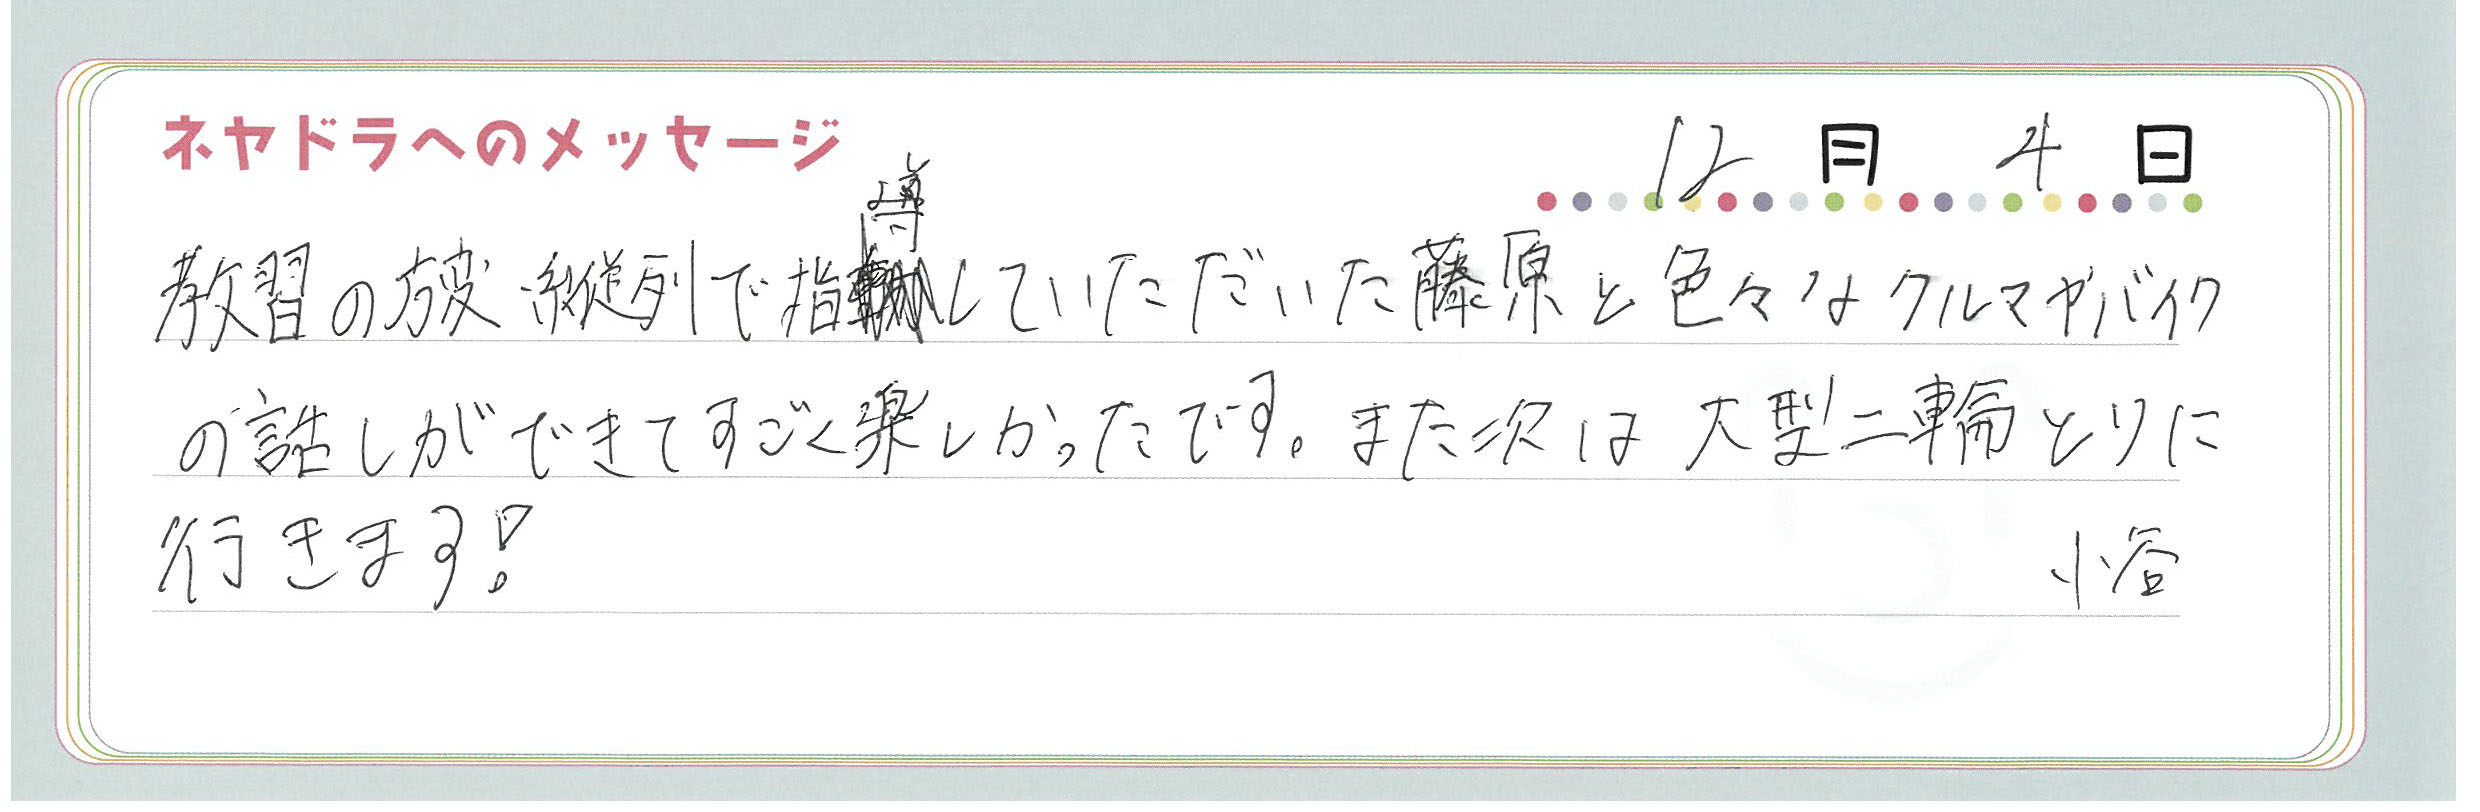 ネヤドラへのメッセージ
12月 4日
教習の度、縦列で指導していただいた藤原と色々なクルマやバイク
の話しができてすごく楽しかったです。また次は大型二輪とりに
行きます!
小谷